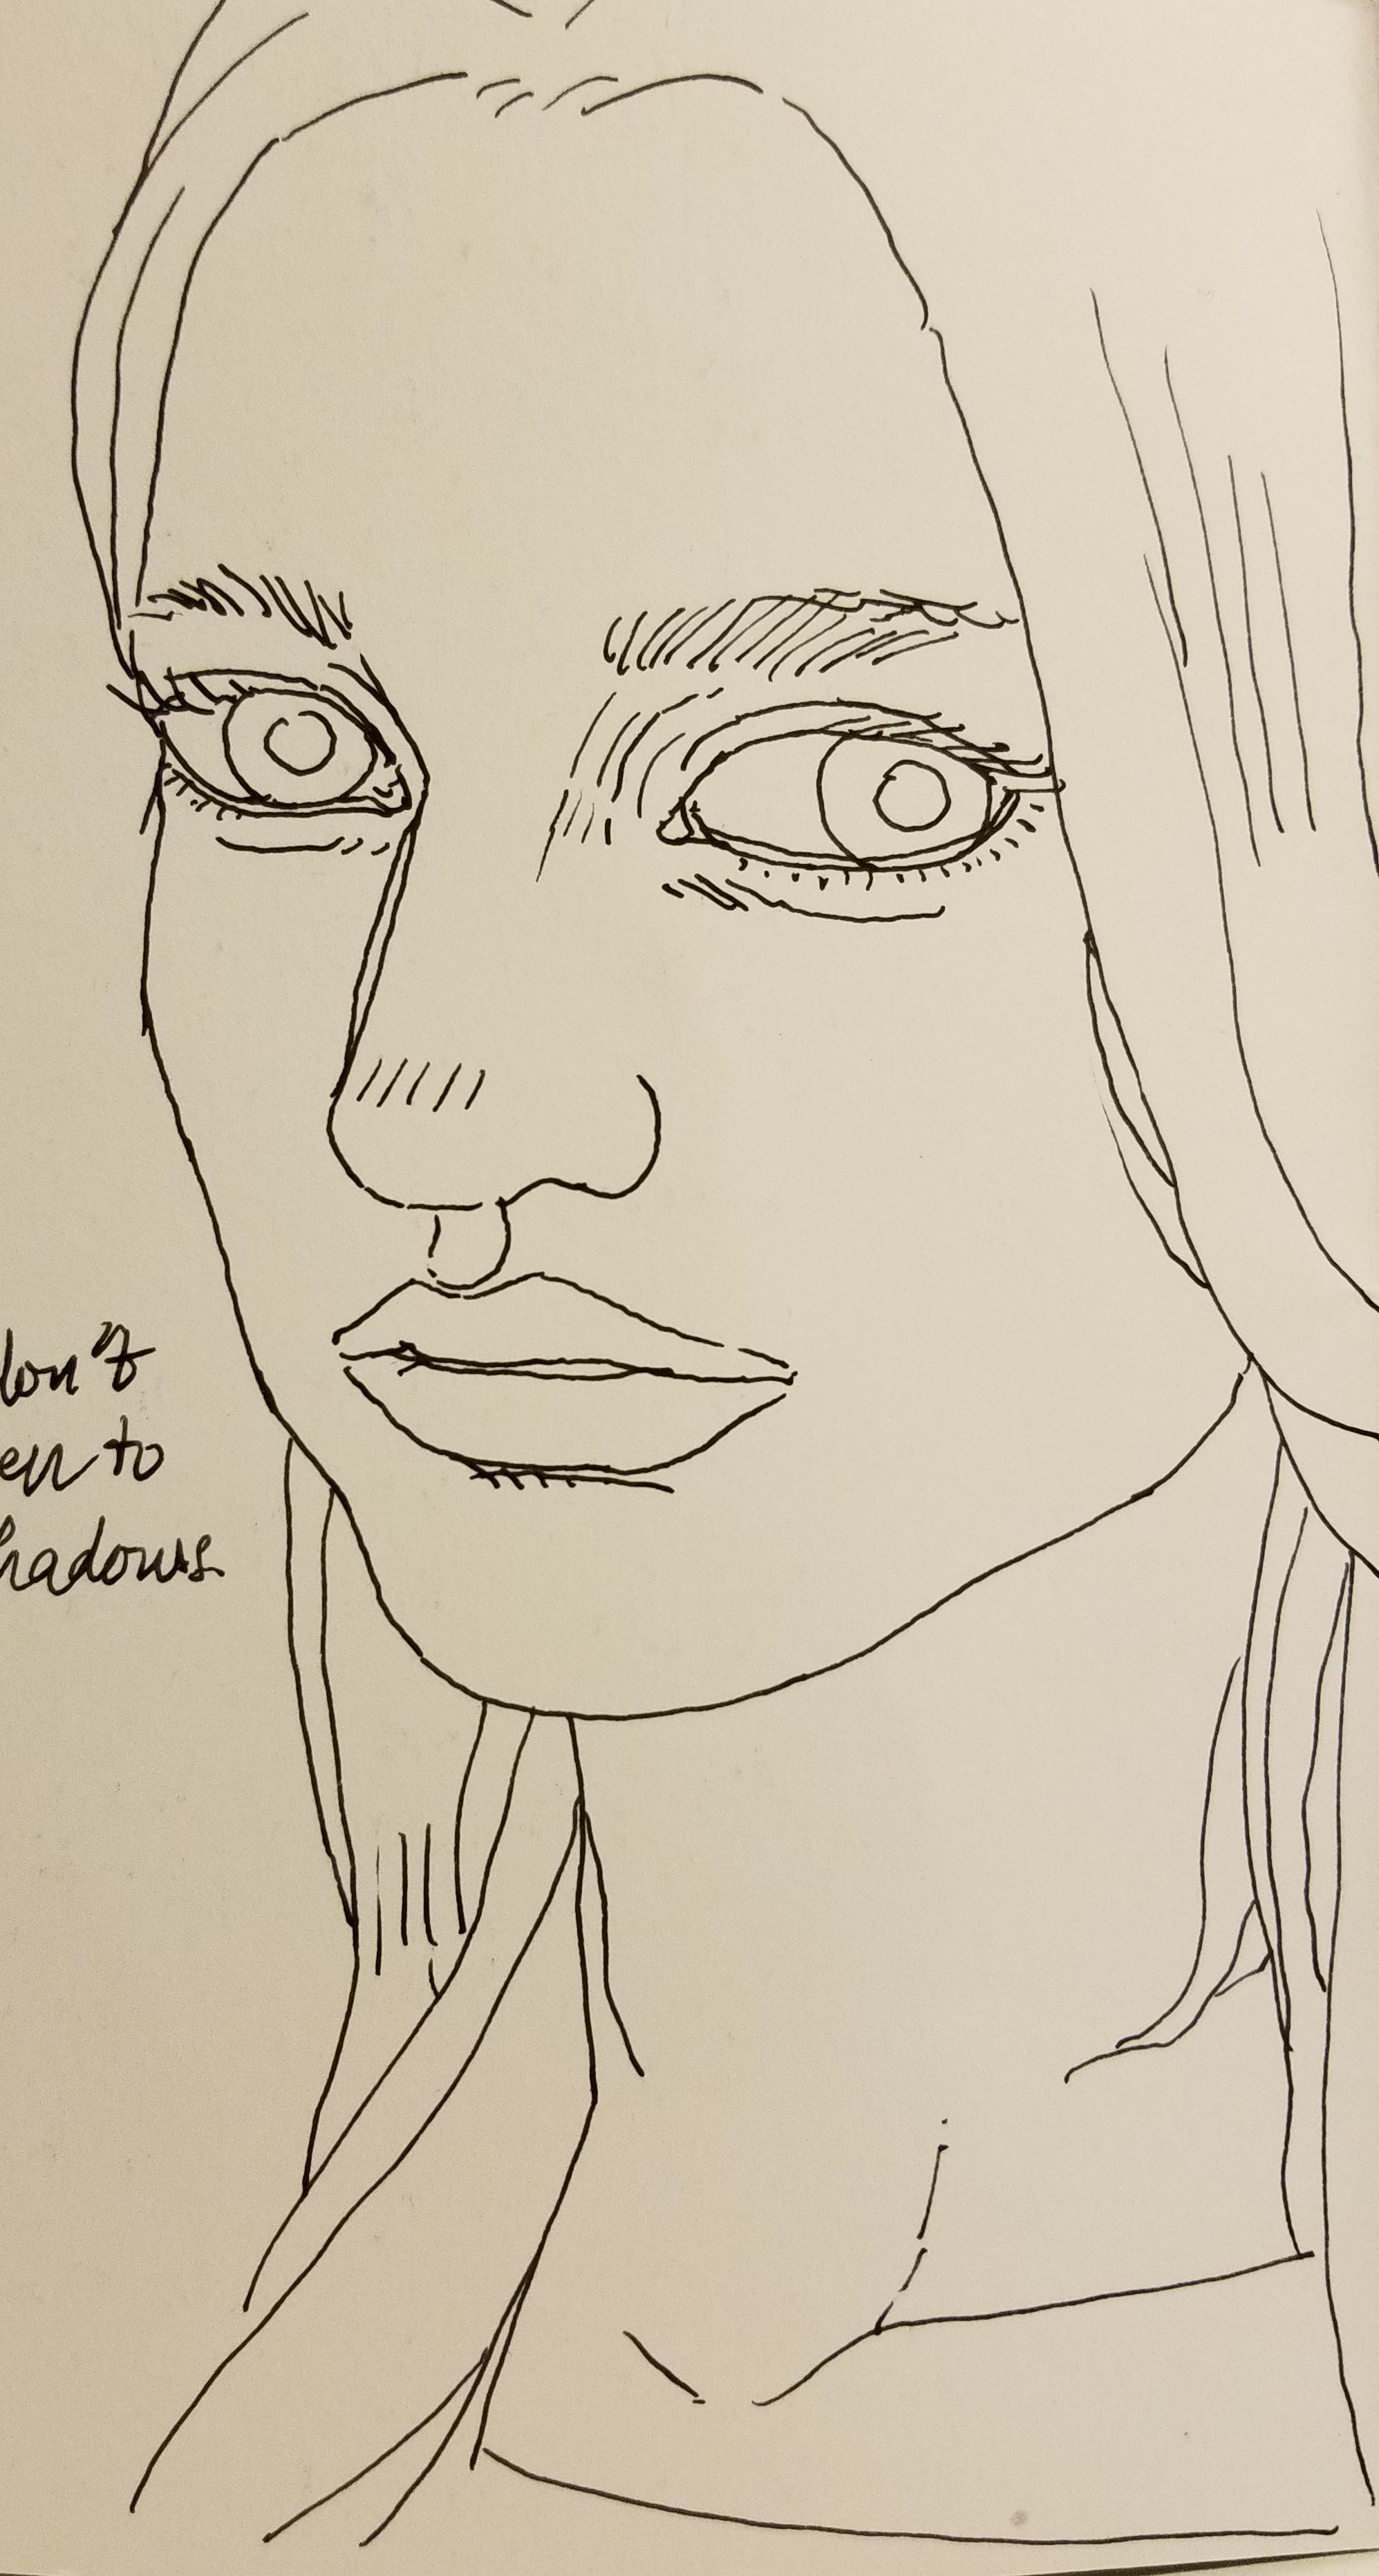 don't
en to
hadows